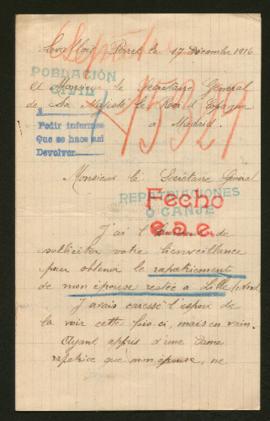 Levallois Perret le 17 Décembre 1916
POBLACIÓN
CIVIL
A Monsieur le Secrétaire Général
de Sa Majesté le Roi d'Espagne
à Madrid
Pedir informes
Que se hace así
Devolver
Monsieur le Secrétaire Général
REPATRIACIONES
O CANJE
Fecho
e.a.e.
J'ai l'honneur de
solliciter votre bienveillance
pour obtenir le rapatriement
de mon épouse restée à Lille (Nord
J'avais caressé l'espoir de
la voir cette fois-ci, mais en vain.
Ayant appris d'une dame
rapatriée que mon épouse, ne